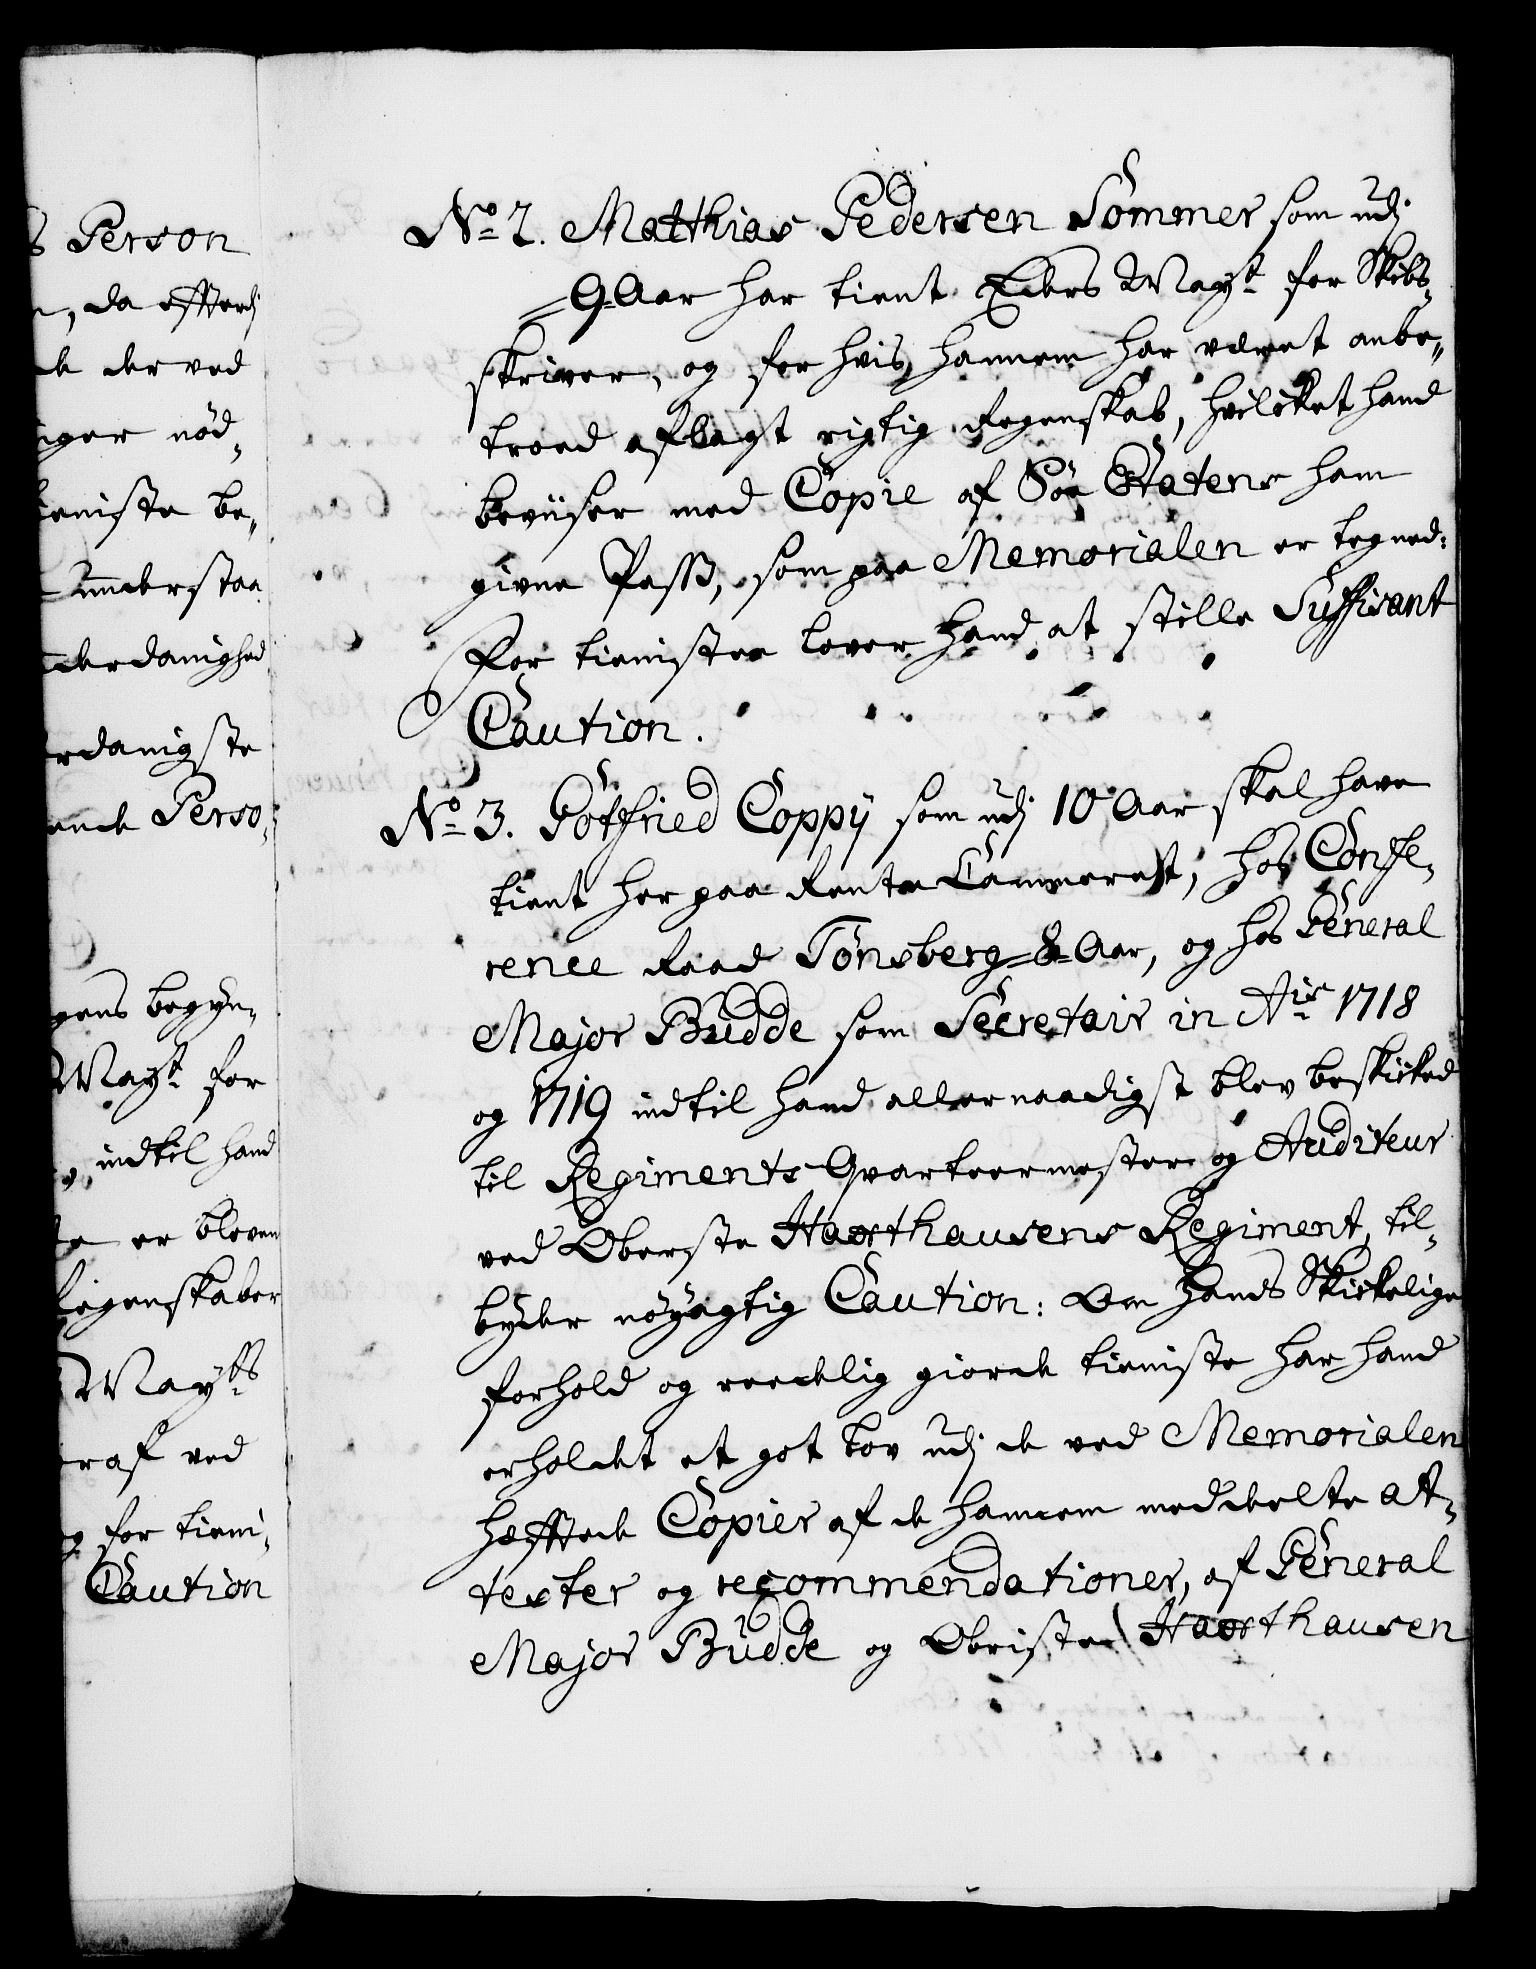 s Person
, da effterdj
de der ved
nger nød-
ieniste be-
Understaa
derdanighed
rdanigste
ende Perso-
gens begyn-
May:t for
indtil hand
er bleven
Regenskaber
May:tts
eraf ved
og for tieni-
Caution
No 2. Matthias Pedersen Sommer som udj
9 Aar har tient Eders May:t for Skibs-
skriver, og for hvis hannem har været anbe-
troed aflagt rigtig Regenskab, hvilcket hand
beviiser med Copie af Søe Etatens ham
givne Pass, som paa Memorialen er tegned:
For tienisten lover hand at stille Suffisant
Caution.
No 3. Gotfried Coppij som udj 10 Aar skal have
tient her paa Rente Cammeret, hos Confe-
rence Raad Tønsberg 8 Aar, og hos General
Major Budde som Secretair in A:is 1718
og 1719 indtil hand allernaadigst blev beskicked
til Regiments Qvarteermester og Auditeur
ved Oberste Haxthausens Regiment, til-
byder nøyagtig Caution: Om hands Skickelige
forhold og reedelig giorde tieniste har hand
erholdet et got Lov udj de ved Memorialen
hefftede Copier af de hannem meddeelte At-
tester og recommendationer, af General
Major Budde og Obriste Haxthausen